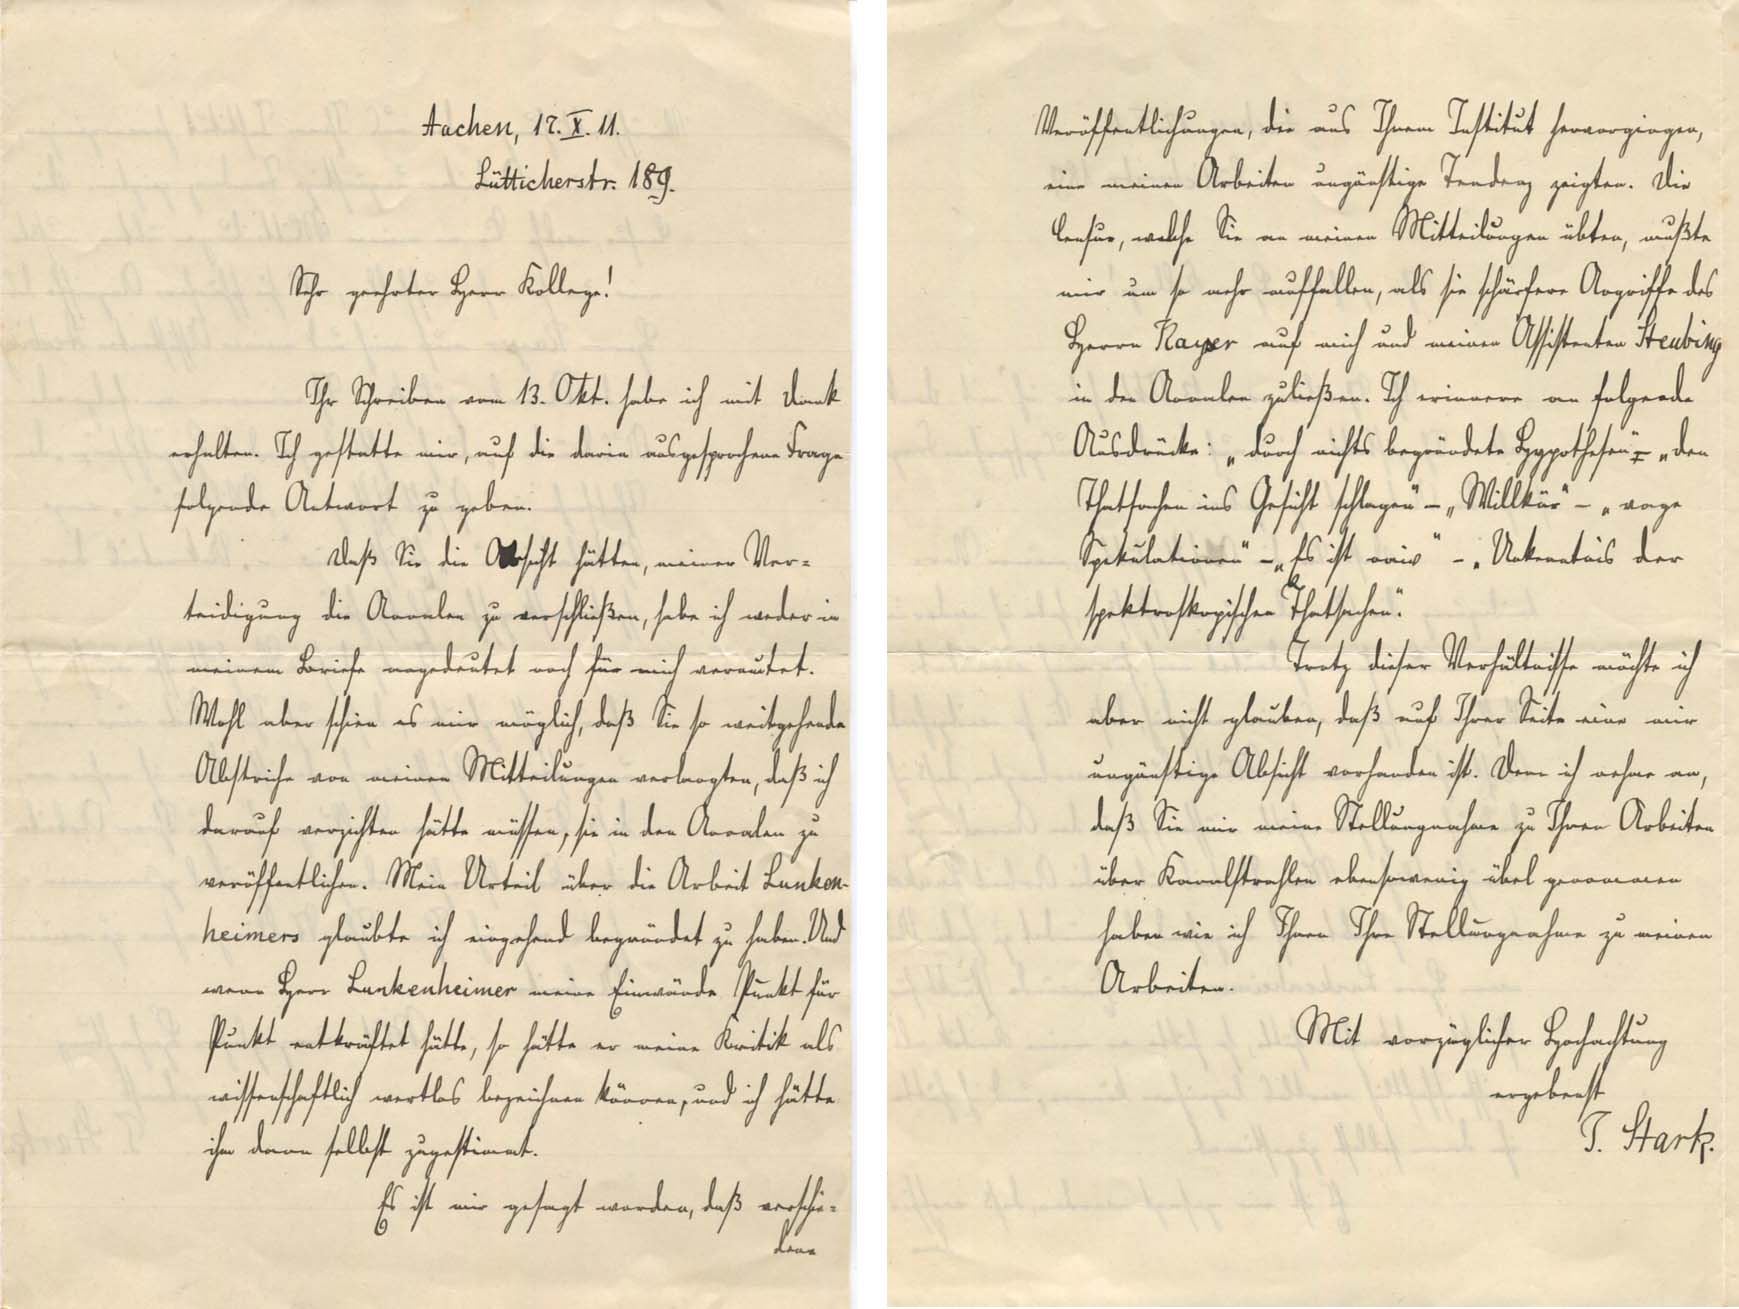 Aachen, 17. X. 11.
Lütticherstr. 189.
Sehr geehrter Herr Kollege!
Ihr Schreiben vom 13. Okt. habe ich mit Dank
erhalten. Ich gestatte mir, auf die darin ausgesprochene Frage
folgende Antwort zu geben.
Daß Sie die Absicht hätten, meiner Ver=
teidigung die Annalen zu verschließen, habe ich weder in
meinem Briefe angedeutet noch für mich vermutet.
Wohl aber schien es mir möglich, daß Sie so weitgehende
Abstriche von meinen Mitteilungen verlangten, daß ich
darauf verzichten hätte müssen, sie in den Annalen zu
veröffentlichen. Mein Urteil über die Arbeit Lunken-
heimers glaubte ich eingehend begründet zu haben. Und
wenn Herr Lunkenheimer meine Einwände Punkt für
Punkt entkräftet hätte, so hätte er meine Kritik als
wissenschaftlich wertlos bezeichnen können, und ich hätte
ihm dann selbst zugestimmt.
Es ist mir gesagt worden, daß verschie=
dene
Veröffentlichungen, die aus Ihrem Institut hervorgingen,
eine meinen Arbeiten ungünstige Tendenz zeigten. Die
Censur, welche Sie an meinen Mitteilungen übten, mußte
mir um so mehr auffallen, als sie schärfere Angriffe des
Herrn Kayser auf mich und meinen Assistenten Steubing
in den Annalen zuließen. Ich erinnere an folgende
Ausdrücke: „durch nichts begründete Hypothesen" – „den
Thatsachen ins Gesicht schlagen" – „Willkür" – „vage
Spekulationen" – „Es ist naiv" – „Unkenntnis der
spektroskopischen Thatsachen".
Trotz dieser Verhältnisse möchte ich
aber nicht glauben, daß auf Ihrer Seite eine mir
ungünstige Absicht vorhanden ist. Denn ich nehme an,
daß Sie mir meine Stellungnahme zu Ihren Arbeiten
über Kanalstrahlen ebensowenig übel genommen
haben wie ich Ihnen Ihre Stellungnahme zu meinen
Arbeiten.
Mit vorzüglicher Hochachtung
ergebenst
J. Stark.